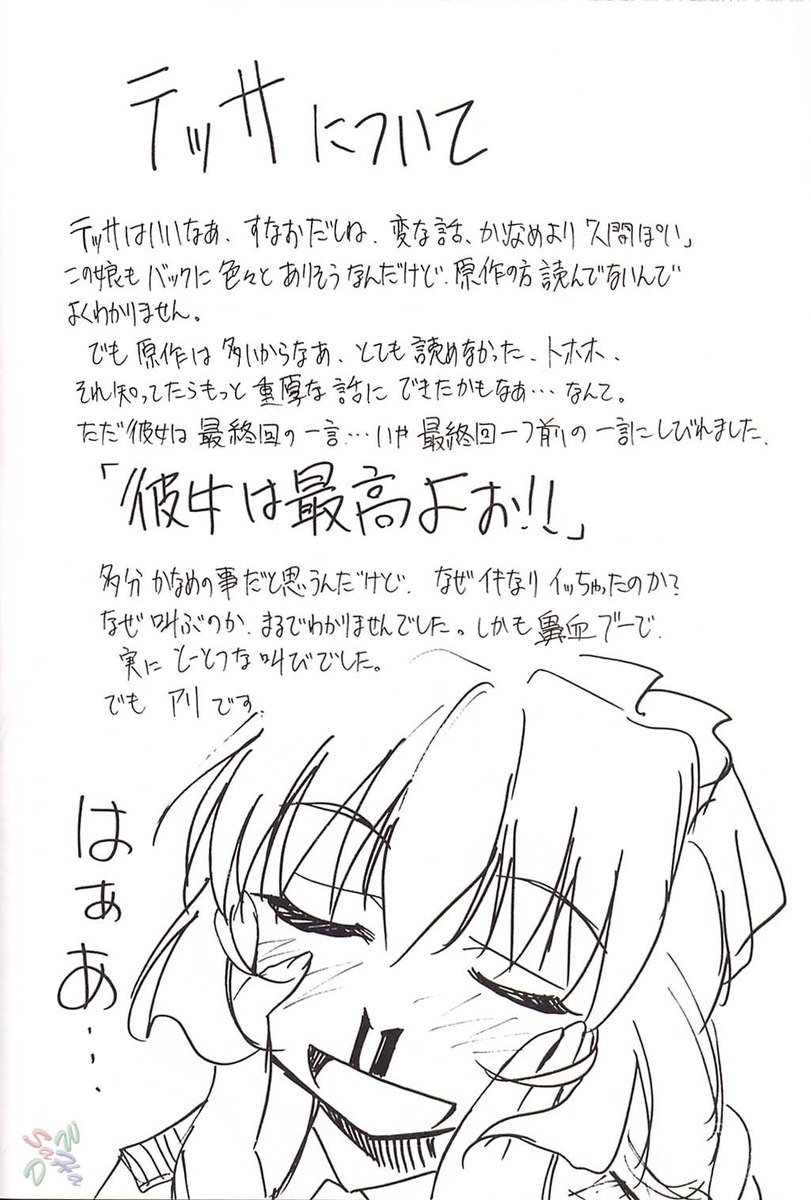 テッサについて
テッサはいいなぁ、すなおだしね、変な話、かなめより人間ぽい」
この娘もバックに色々とありそうなんだけど、原作の方読んでないんで
よくわかりません。
でも原作は多いからなぁ、とても読めなかった、トホホ、
それ知ってたらもっと重厚な話にできたかもなぁ…なんて。
ただ彼女は最終回の一言…いや最終回一つ前の一言にしびれました。
「彼女は最高よぉ!!」
多分かなめの事だと思うんだけど、なぜイキなりイッちゃったのか?
なぜ叫ぶのか、まるでわかりませんでした。しかも鼻血ブーで、
実にとーとつな叫びでした。
でもアリです。
はぁあ…